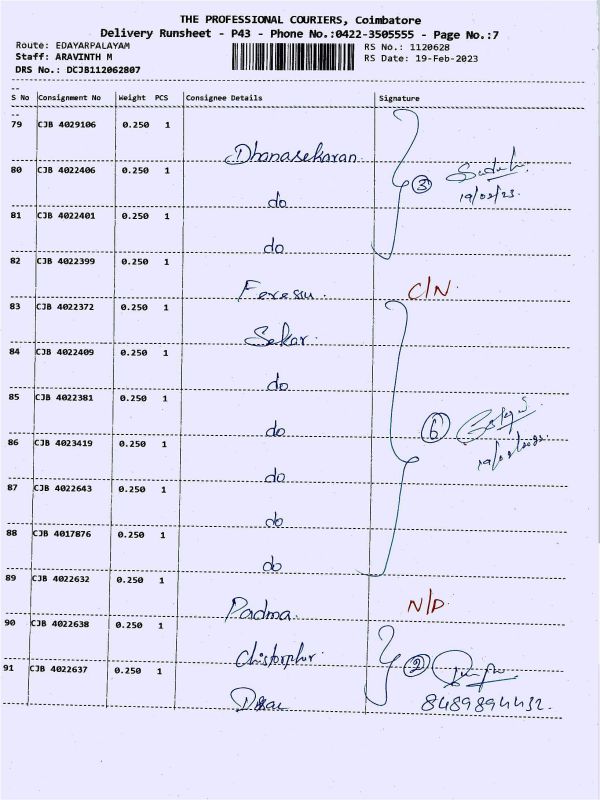 THE PROFESSIONAL COURIERS, Coimbatore
Delivery Runsheet - P43 - Phone No.:0422-3505555 - Page No.:7
Route: EDAYARPALAYAM
RS No.: 1120628
Staff: ARAVINTH M
RS Date: 19-Feb-2023
DRS No.: DCJB112062807
S No Consignment No Weight PCS Consignee Details Signature
79 CJB 4029106 0.250 1
Dhanasekaran
80 CJB 4022406 0.250 1
do
3
19/02/23
81 CJB 4022401 0.250 1
do
82 CJB 4022399 0.250 1
C/N
83 CJB 4022372 0.250 1
Sekar
84 CJB 4022409 0.250 1
do
85 CJB 4022381 0.250 1
do
6
86 CJB 4023419 0.250 1
do
87 CJB 4022643 0.250 1
do
88 CJB 4017876 0.250 1
do
89 CJB 4022632 0.250 1
Padma
N/D
90 CJB 4022638 0.250 1
Chistorpher
2
91 CJB 4022637 0.250 1
8489894432